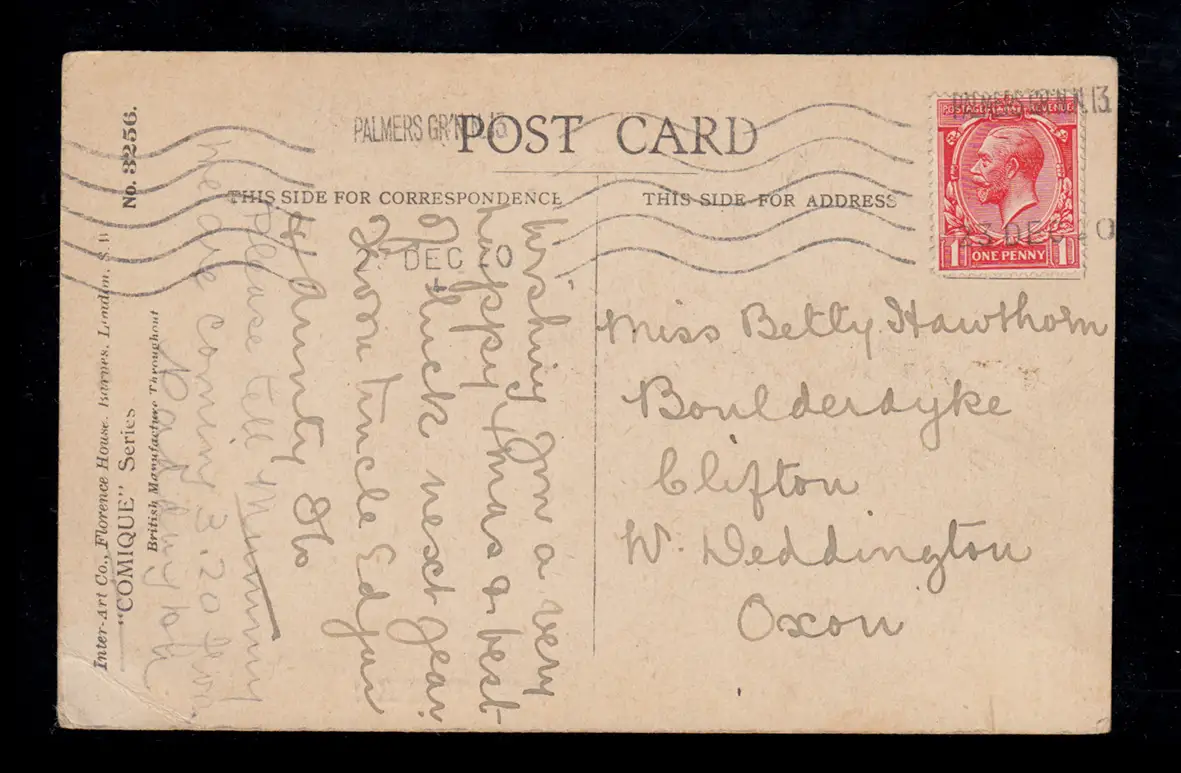 POST CARD
THIS SIDE FOR CORRESPONDENCE
THIS SIDE FOR ADDRESS
PALMERS GR'N
DEC 20
POSTAGE REVENUE
PALMERS GR'N N.13
DEC 20
1 ONE PENNY 1
Miss Betty Hawthorn
Boulderdyke
Clifton
W. Deddington
Oxon
Wishing you a very
happy Xmas & best
of luck next year
from Uncle Edgar
& Aunty
Please tell Mummy
we are coming 3.20 from
Paddington
No. 3256.
Inter-Art Co., Florence House, Barnes, London, S.W
"COMIQUE" Series
British Manufacture Throughout